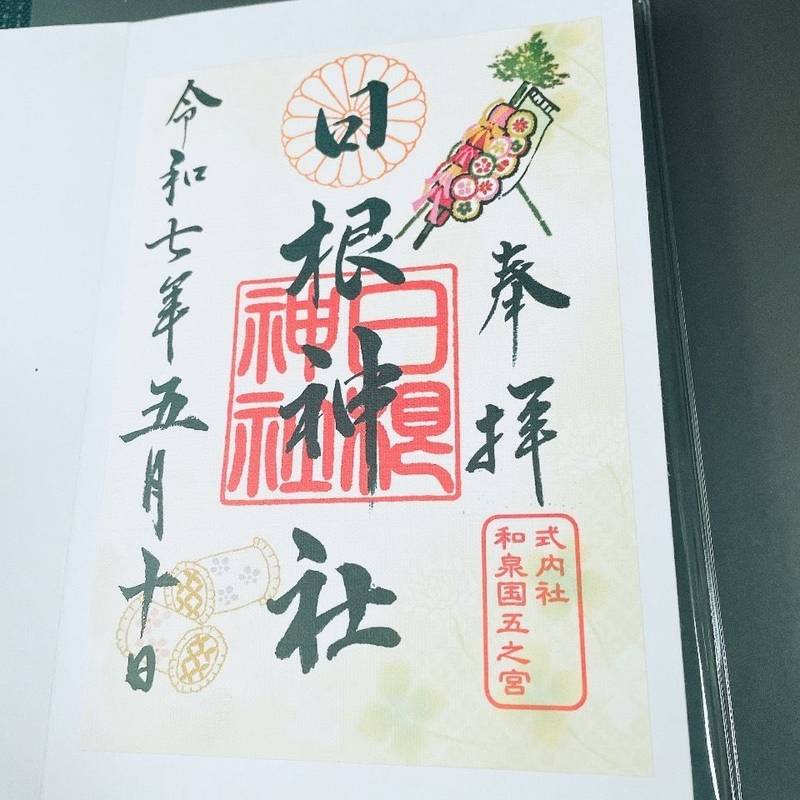 奉拝
式内社
和泉国五之宮
日根神社
日根神社
令和七年五月十日